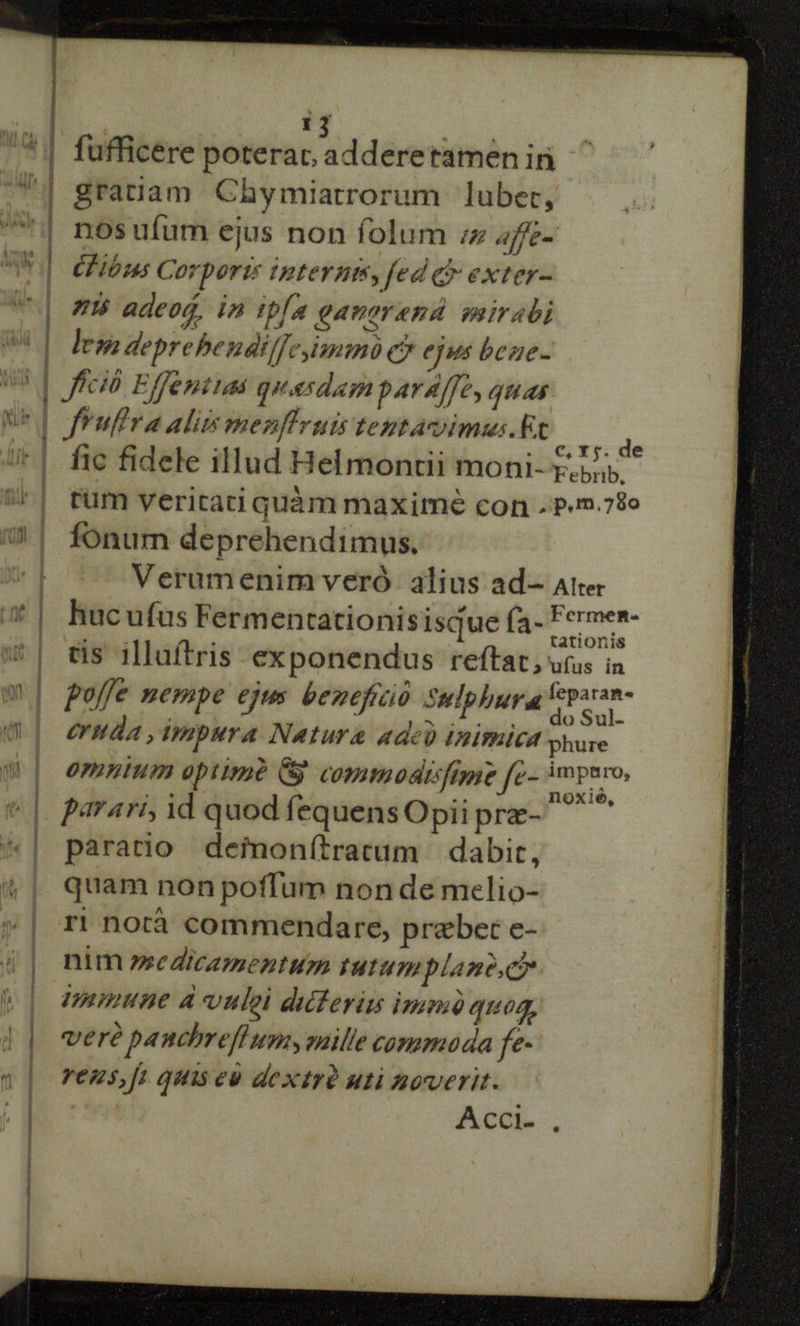 13
ſufficere poterat, addere tamen in
gratiam Chymiatrorum lubet,
nos uſum ejus non ſolum in affe-
ctibus Corporis internis, ſed & exter-
nis adeoq; in ipſa gangrænâ mirabi
lem deprehendiſſe, immò & ejus bene-
ficiô Eſſentias quasdam parâſſe, quas
fruſtra aliis menſtruis tentavimus. Et
ſic fidele illud Helmontii moni-
tum veritati quàm maximè con-
ſonum deprehendimus.
c. 15. de
Febrib.
p.m. 780
Verumenimverò alius ad-
huc uſus Fermentationis isque ſa-
tis illuſtris exponendus reſtat,
poſſe nempe ejus beneficiô Sulphura
cruda, impura Naturæ adeò inimica
omnium optimè & commodisſimè ſe-
parari, id quod ſequens Opii præ-
Alter
Fermen-
tationis
uſus in
ſeparan-
do Sul-
phure
impuro,
noxiô,
paratio demonſtratum dabit,
quam non poſſum non de melio-
ri notâ commendare, præbet e-
nim medicamentum tutum planè, &
immune à vulgi dicteriis immò quoq;
verè panchreſtum, mille commoda fe-
rens, ſi quis eô dextrè uti noverit.
Acci-